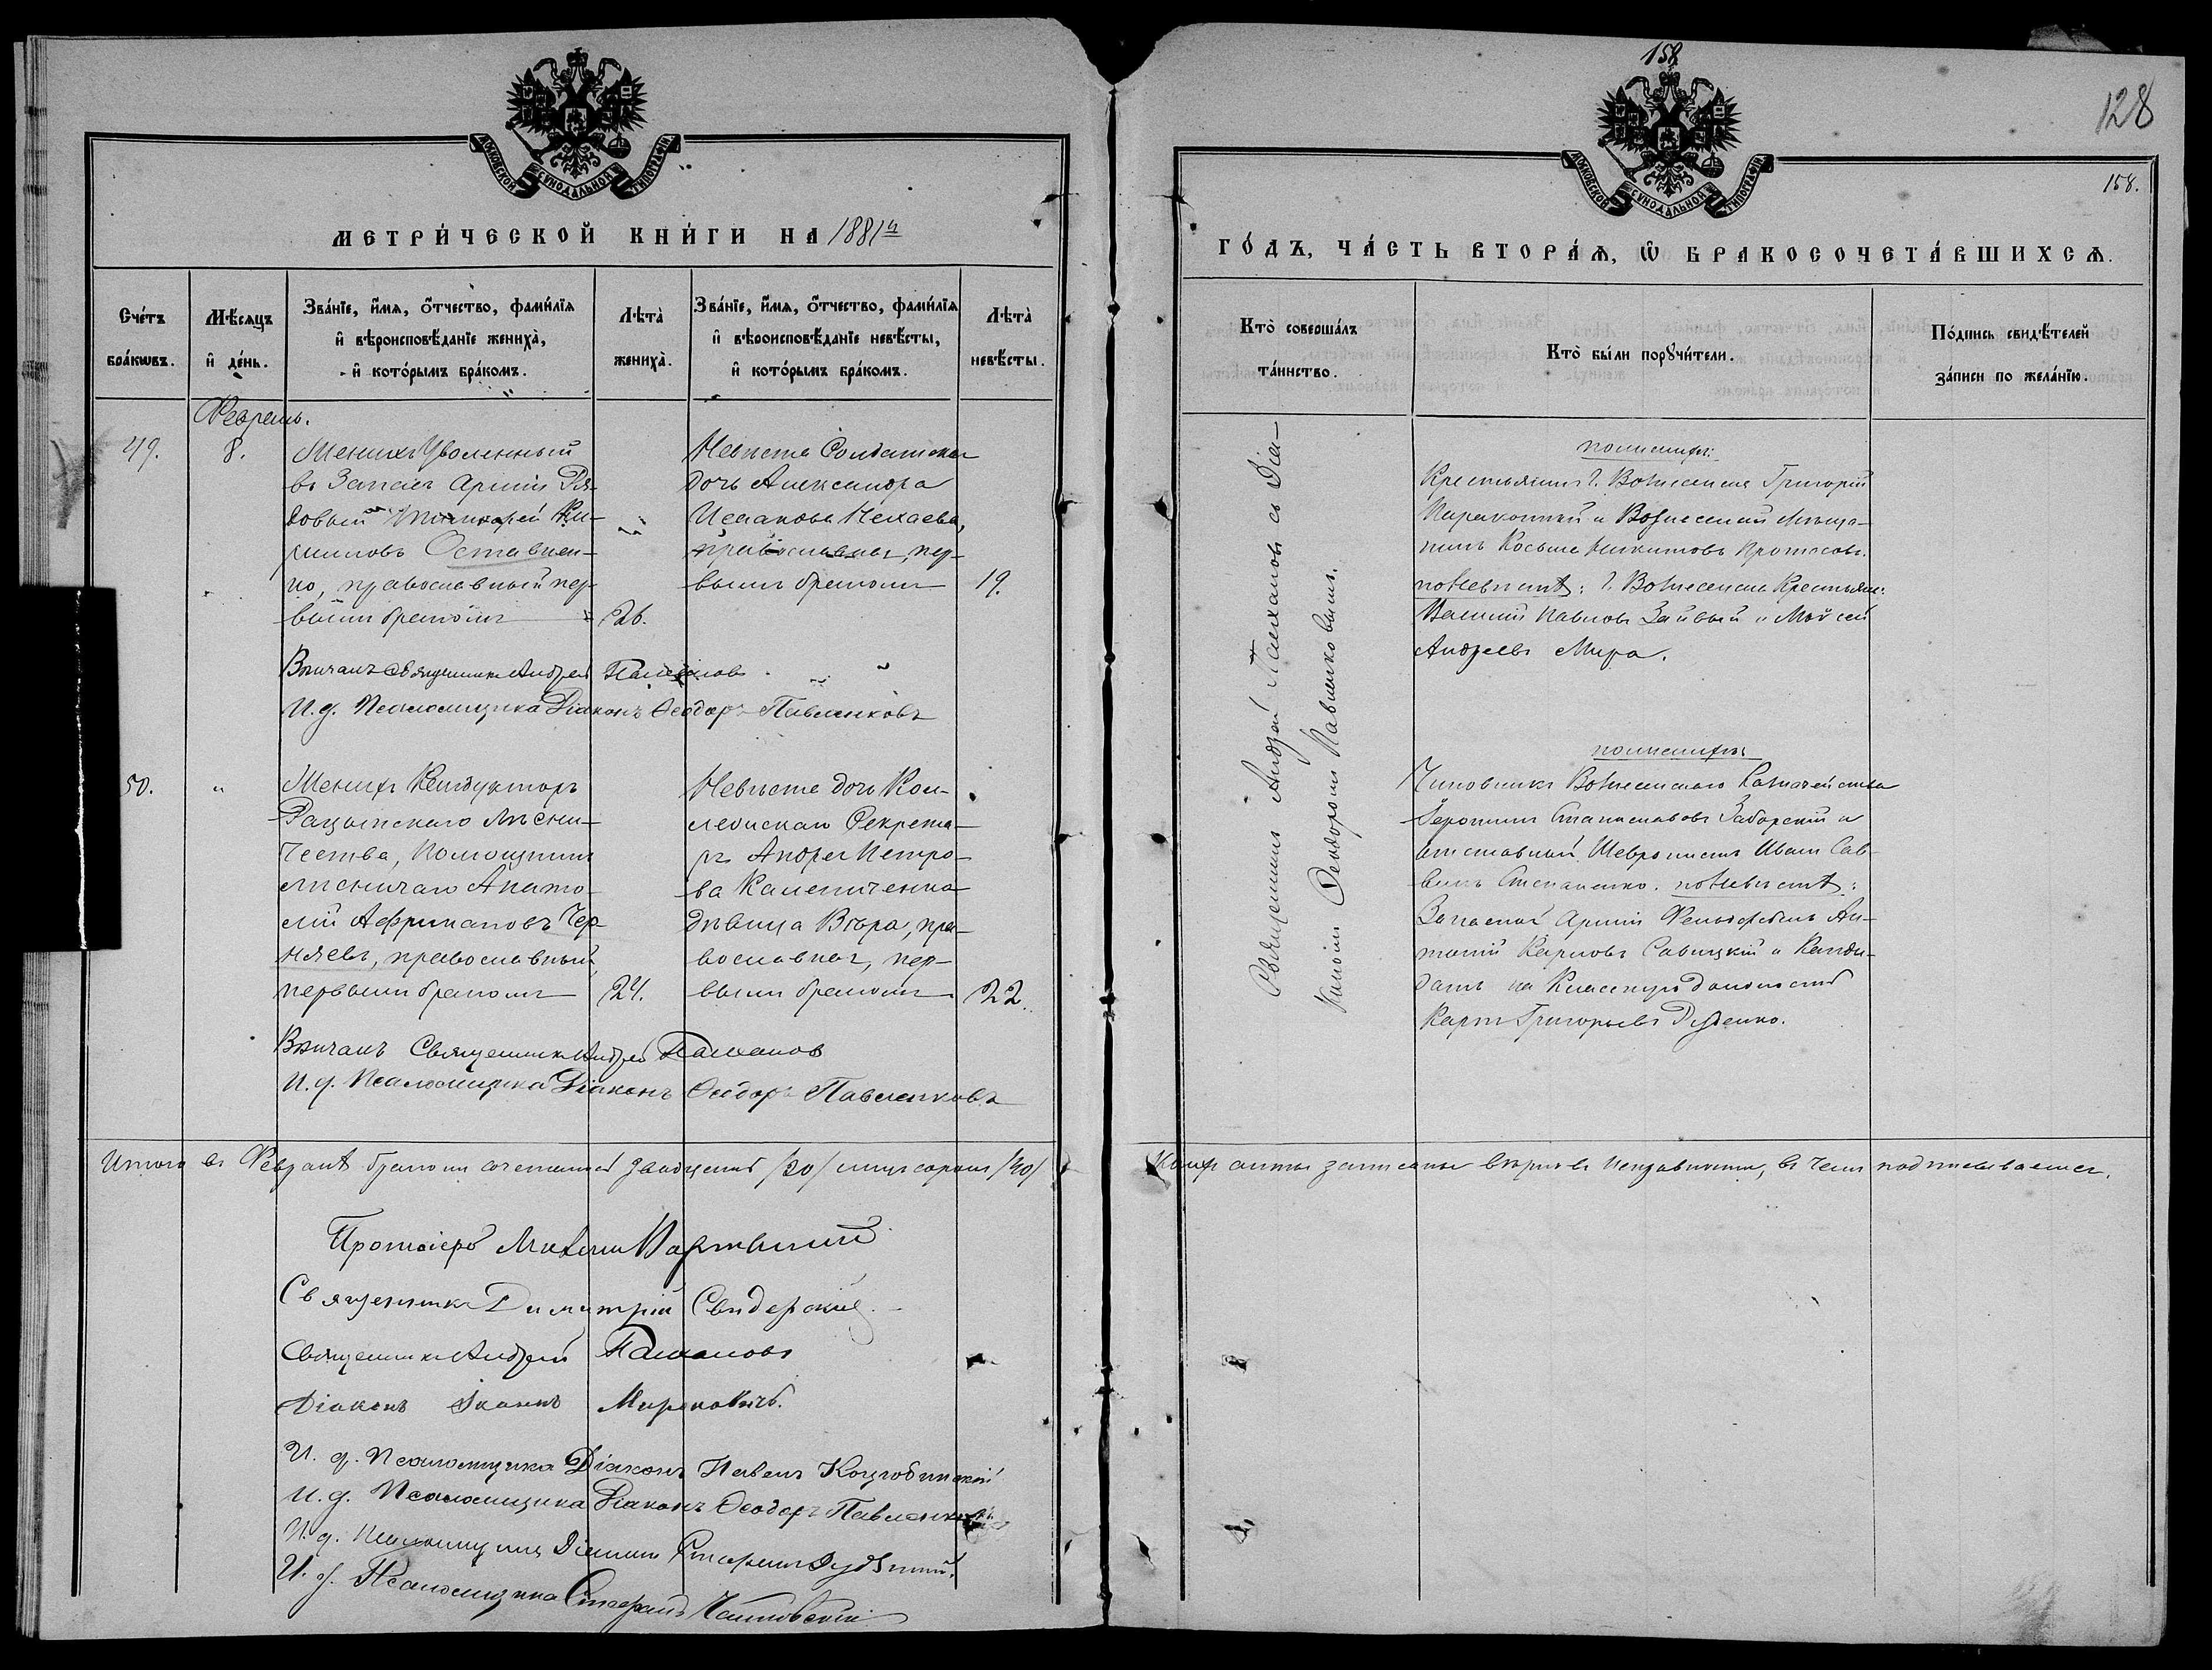 МОСКОВСКОЙ СѴНОДАЛЬНОЙ ТИПОГРАФІИ
МЕТРИ́ЧЕСКОЙ КНИ́ГИ НА 1881й
Сче́тъ бра́кѡвъ.
Мѣ́сяцъ и҆ де́нь.
Зва́нїе, и҆́мѧ, ѻ҆́тчество, фами́лїѧ и҆ вѣроисповѣ́данїе жениха̀, и҆ кото́рымъ бра́комъ.
Лѣта̀ жениха̀.
Зва́нїе, и҆́мѧ, ѻ҆́тчество, фами́лїѧ и҆ вѣроисповѣ́данїе невѣ́сты, и҆ кото́рымъ бра́комъ.
Лѣта̀ невѣ́сты.
Февраль.
49.
8.
Женихъ Уволенный
въ Запасъ Арміи Ря-
довый
Оставнен-
но, православный пер-
вымъ бракомъ
26.
Невѣста Солдатская
дочь Александра
Исаакова Нехаева,
православная, пер-
вымъ бракомъ
19.
Вѣнчалъ Священникъ Андрей Палехановъ
И. д. Псаломщика Діаконъ Ѳеодоръ Павленковъ
50.
"
Женихъ Кондукторъ
Рацынскаго Лѣсни-
чества, Помощникъ
лѣсничаго Анато-
лій Африкановъ Чер-
няевъ, православный,
первымъ бракомъ
24.
Невѣста дочь Кол-
лежскаго Секрета-
ря Андрея Петро-
ва Калениченка
дѣвица Вѣра, пра-
вославная, пер-
вымъ бракомъ
22.
Вѣнчалъ Священникъ Андрей Палехановъ
И. д. Псаломщика Діаконъ Ѳеодоръ Павленковъ
Итого въ Февралѣ бракомъ сочетались двадцать /20/ лицъ сорокъ /40/
Протоіерей Михаилъ
Священникъ Димитрій Свидерскій.
Священникъ Андрей Палехановъ
Діаконъ Іоаннъ Мироновичъ.
И. д. Псаломщика Діаконъ Павелъ Коцюбинскій
И. д. Псаломщика Діаконъ Ѳеодоръ Павленковъ
И. д. Псаломщика Діаконъ Стефанъ
И. д. Псаломщика Стефанъ
158
128
158.
МОСКОВСКОЙ СѴНОДАЛЬНОЙ ТИПОГРАФІИ
ГО́ДЪ, ЧА́СТЬ ВТОРА́Ѧ, Ѡ҆ БРАКОСОЧЕТА́ВШИХСѦ.
Кто̀ соверша́лъ та́инство.
Кто̀ бы́ли порꙋчи́тели.
По́дпись свидѣ́телей за́писи по жела́нїю.
Священникъ Андрей Палехановъ съ Діа-
кономъ Ѳеодоромъ Павленковымъ.
по женихѣ:
Крестьянинъ г. Вознесенска Григорій
и Вознесенскій мѣща-
нинъ Косьма Никитовъ Протасовъ.
по невѣстѣ: г. Вознесенска Крестьян:
Василій Павловъ Заивый и Моисей
Андреевъ Мира.
по женихѣ:
Чиновникъ Вознесенскаго Казначейства
Іеронимъ Станиславовъ Заборскій и
отставный Шевронистъ Иванъ Сав-
винъ Степаненко. по невѣстѣ:
Запасной Арміи Фельдфебель Ан-
тоній Карповъ Савицкій и Канди-
датъ на Классную должность
Карпъ Григорьевъ Руденко.
Коихъ акты записаны вѣрно въ исправности, въ чемъ подписываемся.